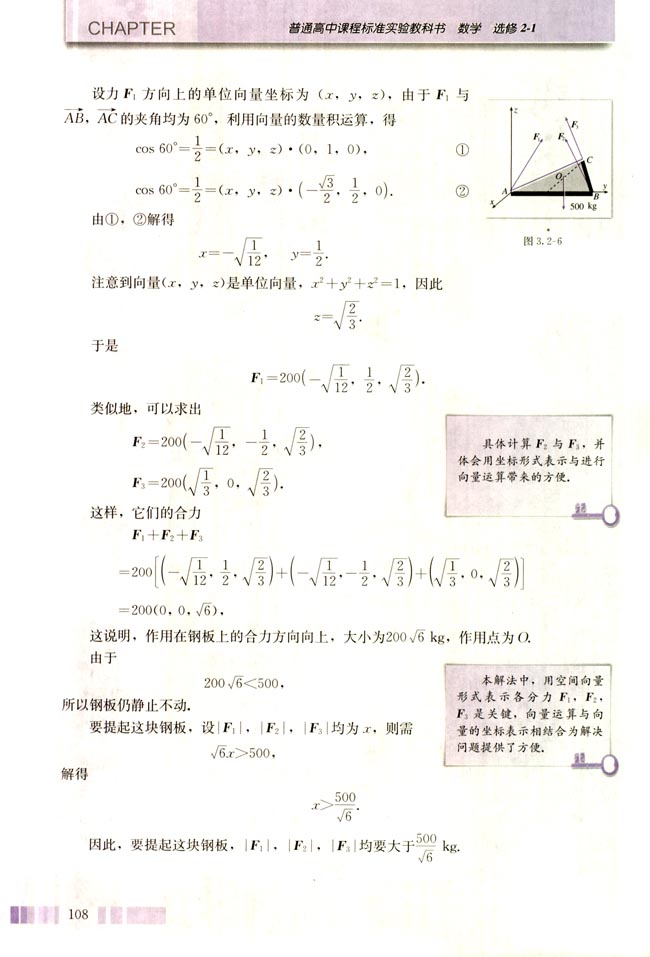 CHAPTER
普通高中课程标准实验教科书 数学 选修 2-1
设力 F₁ 方向上的单位向量坐标为 (x, y, z), 由于 F₁ 与
AB, AC 的夹角均为 60°, 利用向量的数量积运算, 得
cos 60°=1/2=(x, y, z)·(0, 1, 0), ①
cos 60°=1/2=(x, y, z)·(-√3/2, 1/2, 0). ②
由①, ②解得
x=-√(1/12), y=1/2.
注意到向量(x, y, z)是单位向量, x²+y²+z²=1, 因此
z=√(2/3).
于是
F₁=200(-√(1/12), 1/2, √(2/3)).
类似地, 可以求出
F₂=200(-√(1/12), -1/2, √(2/3)),
F₃=200(√(1/3), 0, √(2/3)).
这样, 它们的合力
F₁+F₂+F₃
=200[(-√(1/12), 1/2, √(2/3))+(-√(1/12), -1/2, √(2/3))+(√(1/3), 0, √(2/3))]
=200(0, 0, √6),
这说明, 作用在钢板上的合力方向向上, 大小为200√6 kg, 作用点为 O.
由于
200√6<500,
所以钢板仍静止不动.
要提起这块钢板, 设|F₁|, |F₂|, |F₃|均为 x, 则需
√6x>500,
解得
x>500/√6.
因此, 要提起这块钢板, |F₁|, |F₂|, |F₃|均要大于500/√6 kg.
z
F₃
C
O
A
B
y
x
500 kg
图 3.2-6
具体计算 F₂ 与 F₃, 并
体会用坐标形式表示与进行
向量运算带来的方便.
本解法中, 用空间向量
形式表示各分力 F₁, F₂,
F₃ 是关键, 向量运算与向
量的坐标表示相结合为解决
问题提供了方便.
108